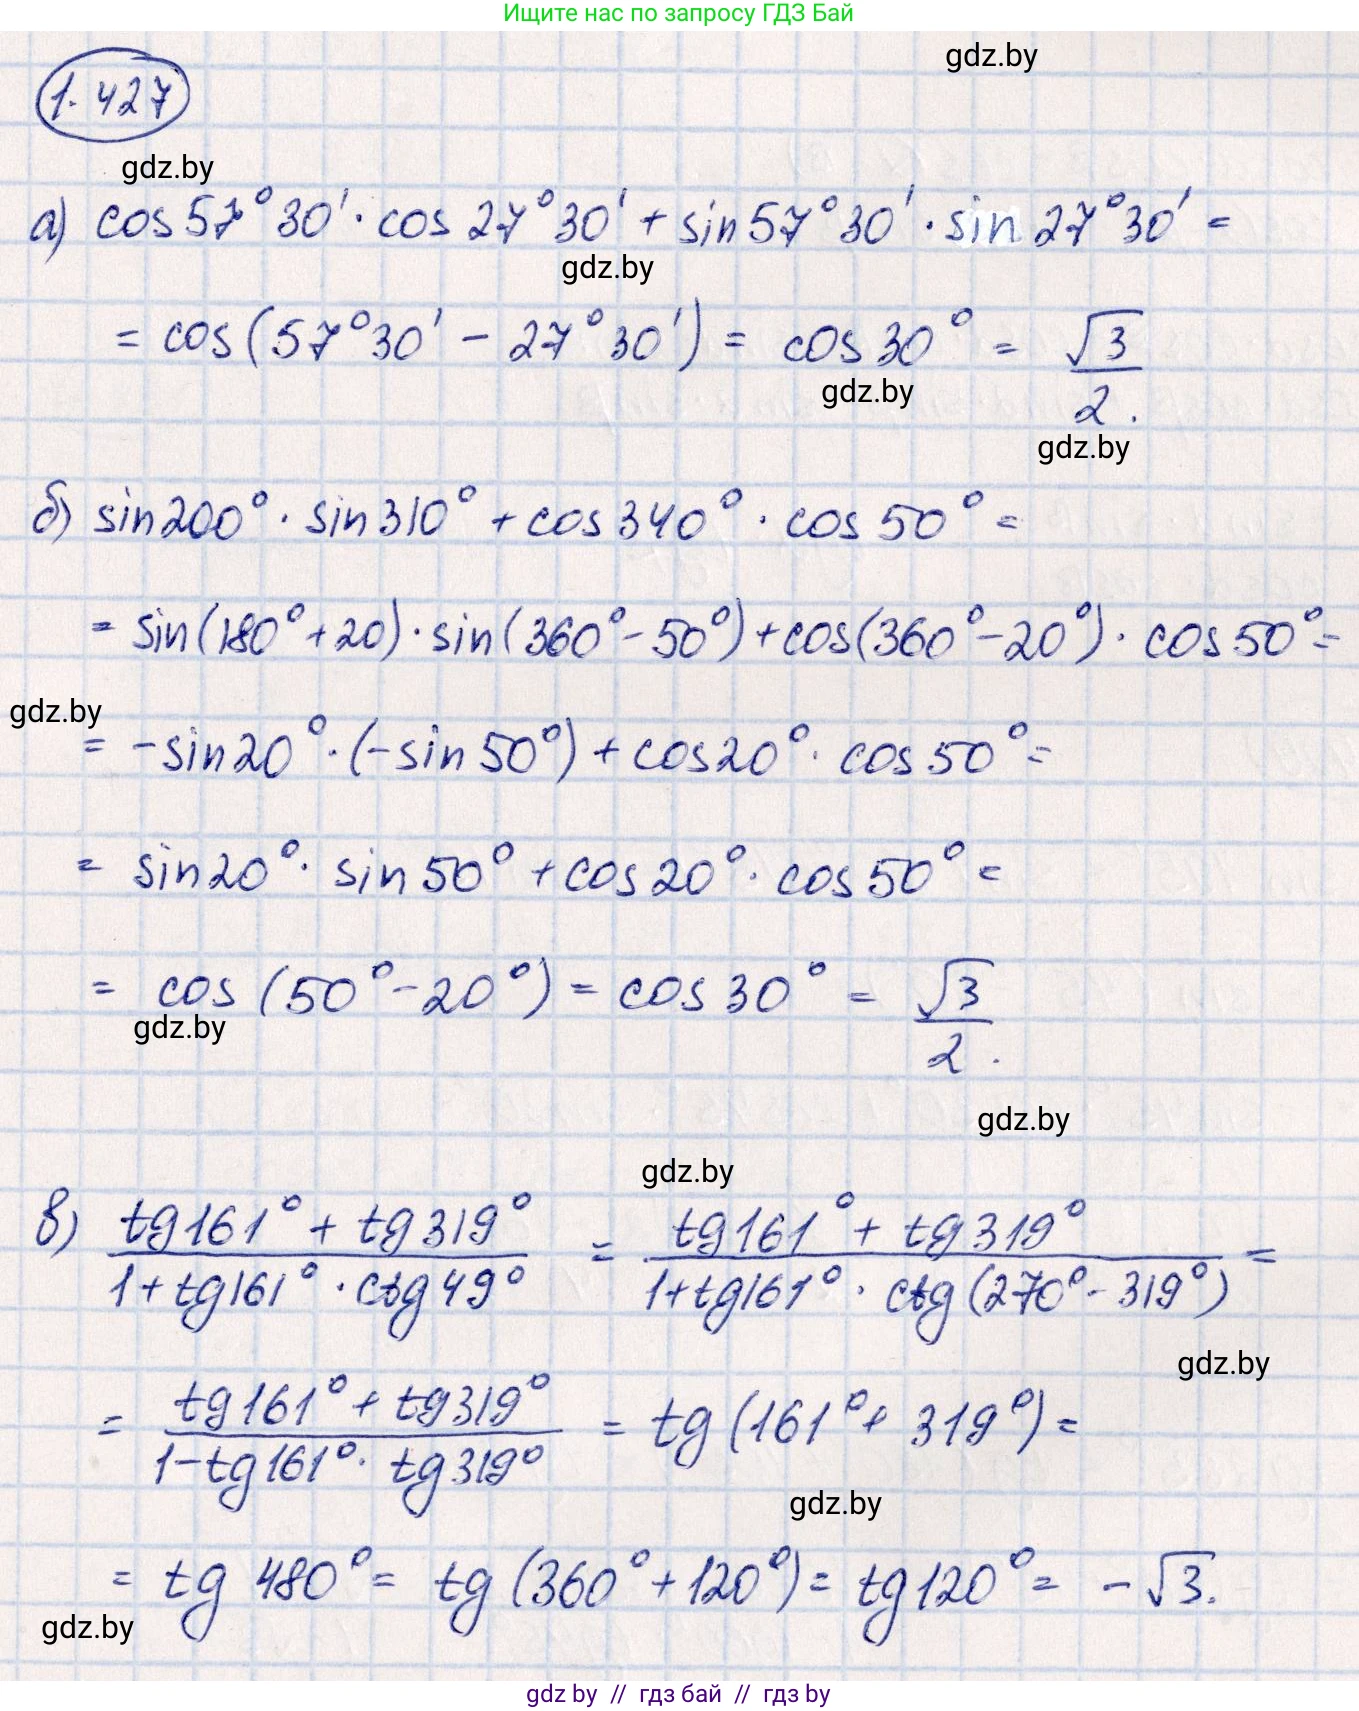 Ищите нас по запросу ГДЗ Бай
gdz.by
1.427
gdz.by
а) cos57°30'·cos27°30'+sin57°30'·sin27°30'=
gdz.by
=cos(57°30'-27°30')=cos30°=√3/2.
gdz.by
gdz.by
б) sin200°·sin310°+cos340°·cos50°=
=sin(180°+20)·sin(360°-50°)+cos(360°-20°)·cos50°=
gdz.by
=-sin20°·(-sin50°)+cos20°·cos50°=
=sin20°·sin50°+cos20°·cos50°=
=cos(50°-20°)=cos30°=√3/2.
gdz.by
gdz.by
gdz.by
в) (tg161°+tg319°)/(1+tg161°·ctg49°)=(tg161°+tg319°)/(1+tg161°·ctg(270°-319°))=
gdz.by
=(tg161°+tg319°)/(1-tg161°·tg319°)=tg(161°+319°)=
gdz.by
=tg480°=tg(360°+120°)=tg120°=-√3.
gdz.by
gdz by // гдз бай // гдз by